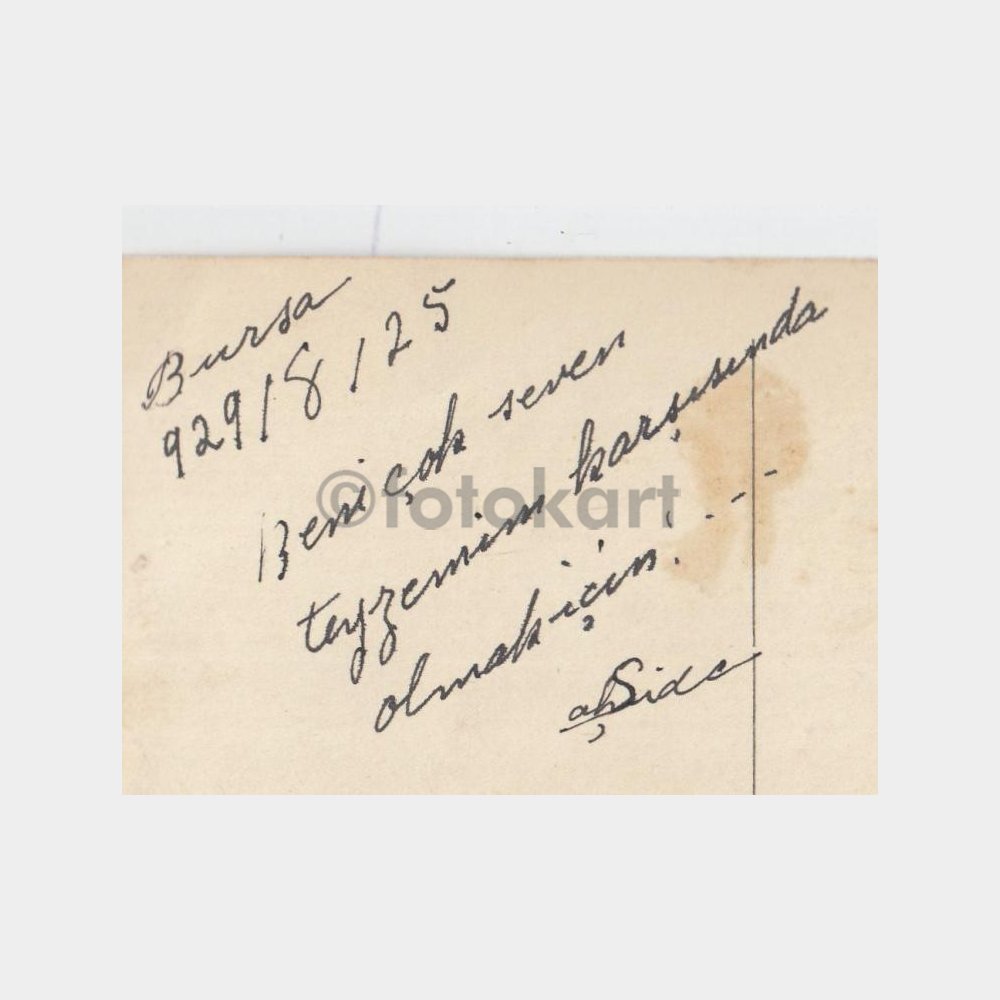 Bursa
929/8/25
Beni çok seven
teyzemim karşısında
olmak için! . - -
©fotokart